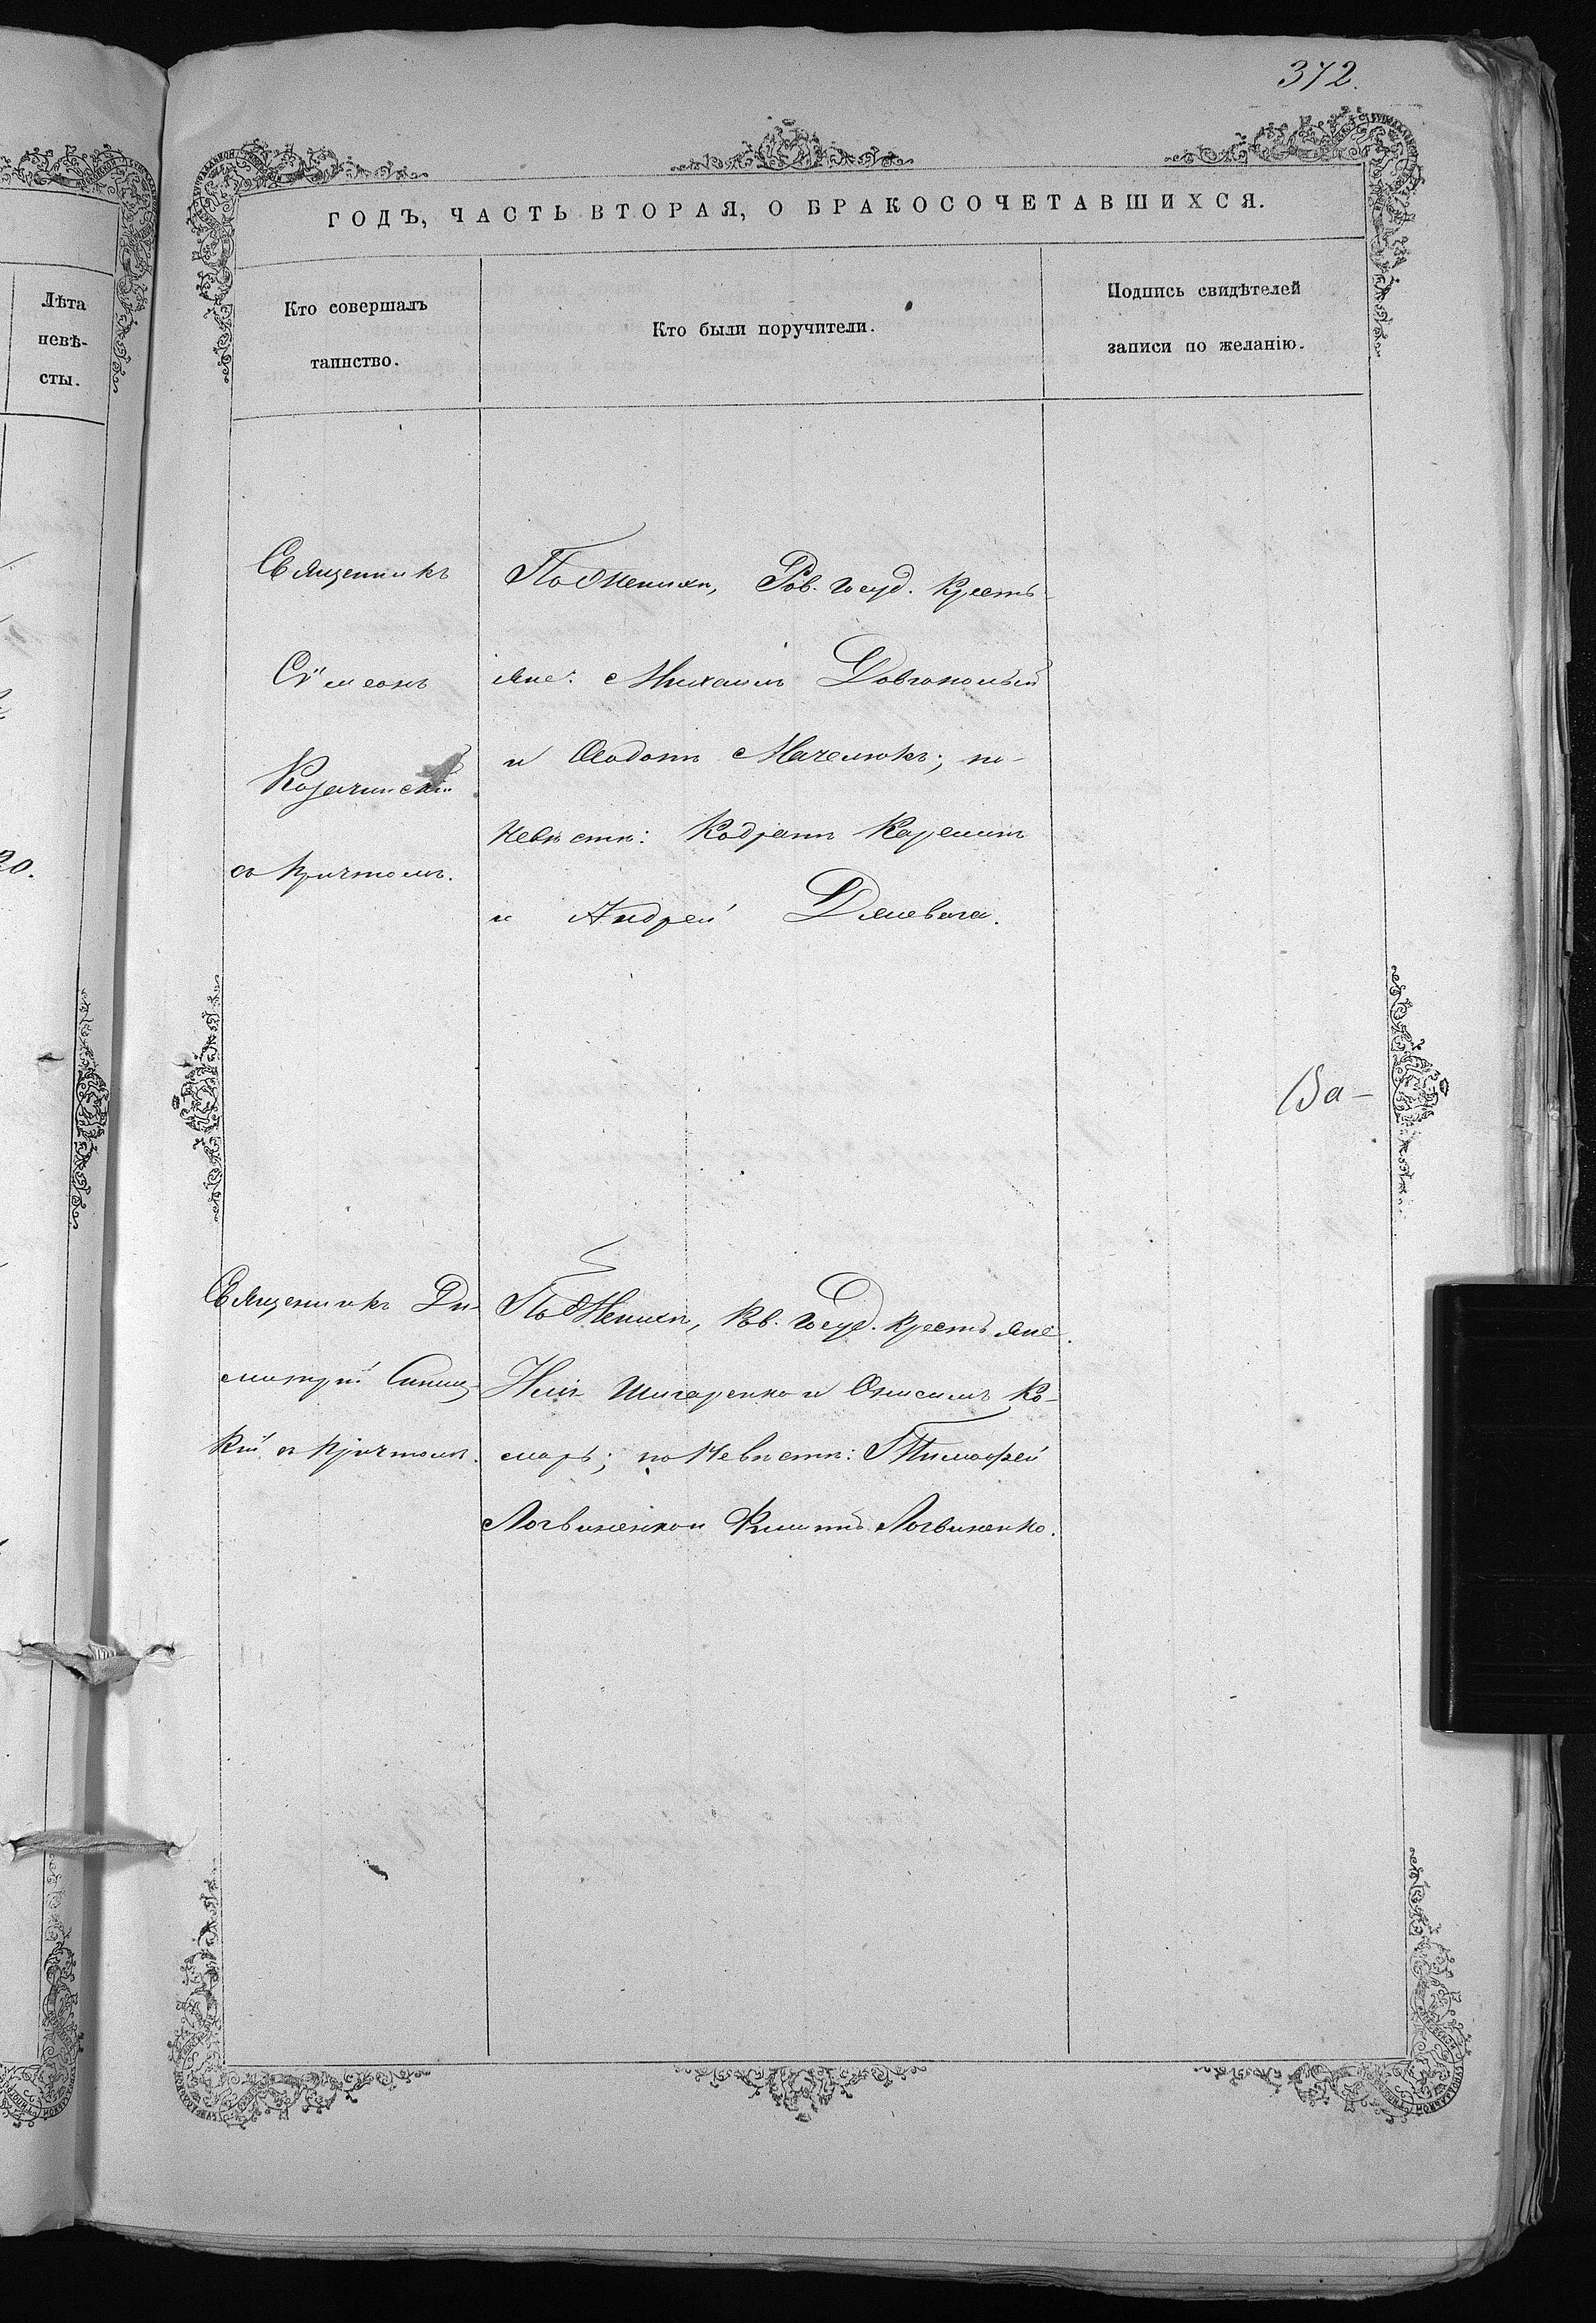 372.
ГОДЪ, ЧАСТЬ ВТОРАЯ, О БРАКОСОЧЕТАВШИХСЯ.
Лѣта
невѣ-
сты.
Кто совершалъ
таинство.
Кто были поручители.
Подпись свидѣтелей
записи по желанію.
20.
Священникъ
Сѵмеонъ
Козачинскій
съ причтомъ.
По Женихѣ, Гов. Госуд. Кресть-
яне: Михаилъ Довгополый
и Ѳеодотъ Мачелюкъ; по
Невѣстѣ: Кодратъ
и Андрей
Ва-
Священникъ Ди-
митрій
кій съ причтомъ.
По Женихѣ, Госуд. Крестьяне
Шигаренко и Онисимъ Ко-
маръ; по Невѣстѣ: Тимофей
Логвиненко и Филиппъ Логвиненко.